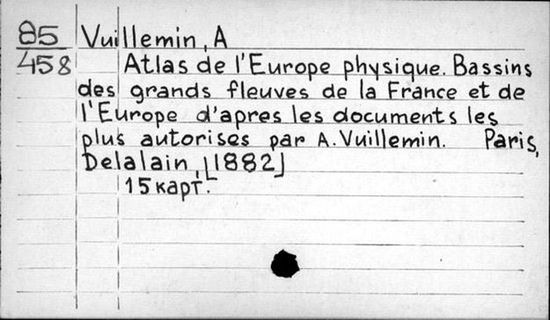 85 Vuillemin, A
458 Atlas de l'Europe physique. Bassins
des grands fleuves de la France et de
l'Europe d'apres les documents les
plus autorises par A. Vuillemin. Paris,
Delalain, [1882]
15 карт.